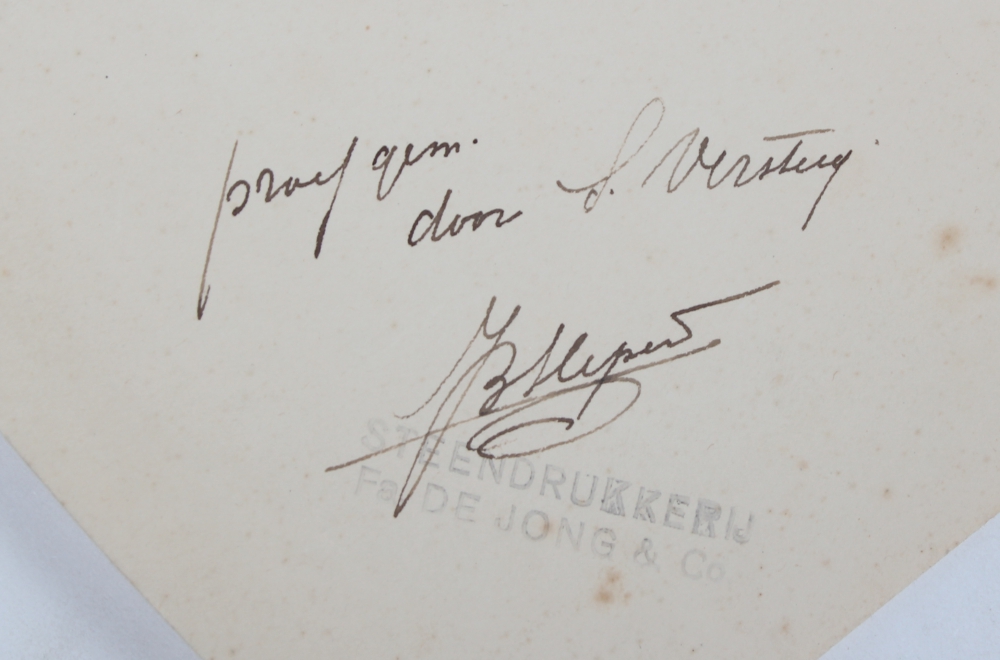 proef gem.
door S. Versteeg.
STEENDRUKKERIJ
Fa. DE JONG & Co.